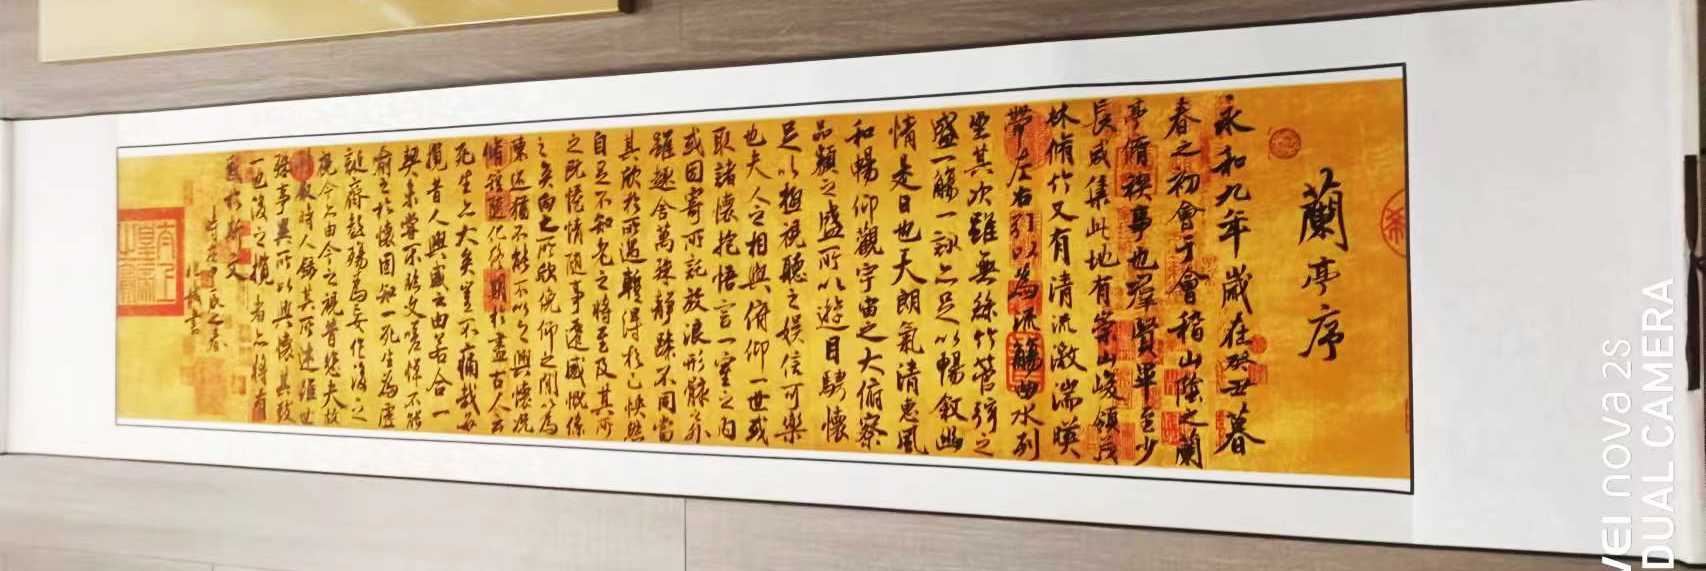 蘭亭序
永和九年歲在癸丑暮
春之初會于會稽山陰之蘭
亭脩禊事也羣賢畢至少
長咸集此地有崇山峻領茂
林脩竹又有清流激湍暎
帶左右引以為流觴曲水列
坐其次雖無絲竹管弦之
盛一觴一詠亦足以暢敘幽
情是日也天朗氣清惠風
和暢仰觀宇宙之大俯察
品類之盛所以遊目騁懷
足以極視聽之娛信可樂
也夫人之相與俯仰一世或
取諸懷抱悟言一室之內
或因寄所託放浪形骸之外
雖趣舍萬殊靜躁不同當
其欣於所遇暫得於己怏然
自足不知老之將至及其所
之既惓情隨事遷感慨係
之矣向之所欣俛仰之間以為
陳迹猶不能不以之興懷況
脩短隨化終期於盡古人云
死生亦大矣豈不痛哉每
攬昔人興感之由若合一
契未嘗不臨文嗟悼不能
喻之於懷固知一死生為虛
誕齊彭殤為妄作後之
視今亦由今之視昔悲夫故
列敘時人錄其所述雖世
殊事異所以興懷其致
一也後之攬者亦將有
感於斯文
VEI nova 2s
DUAL CAMERA